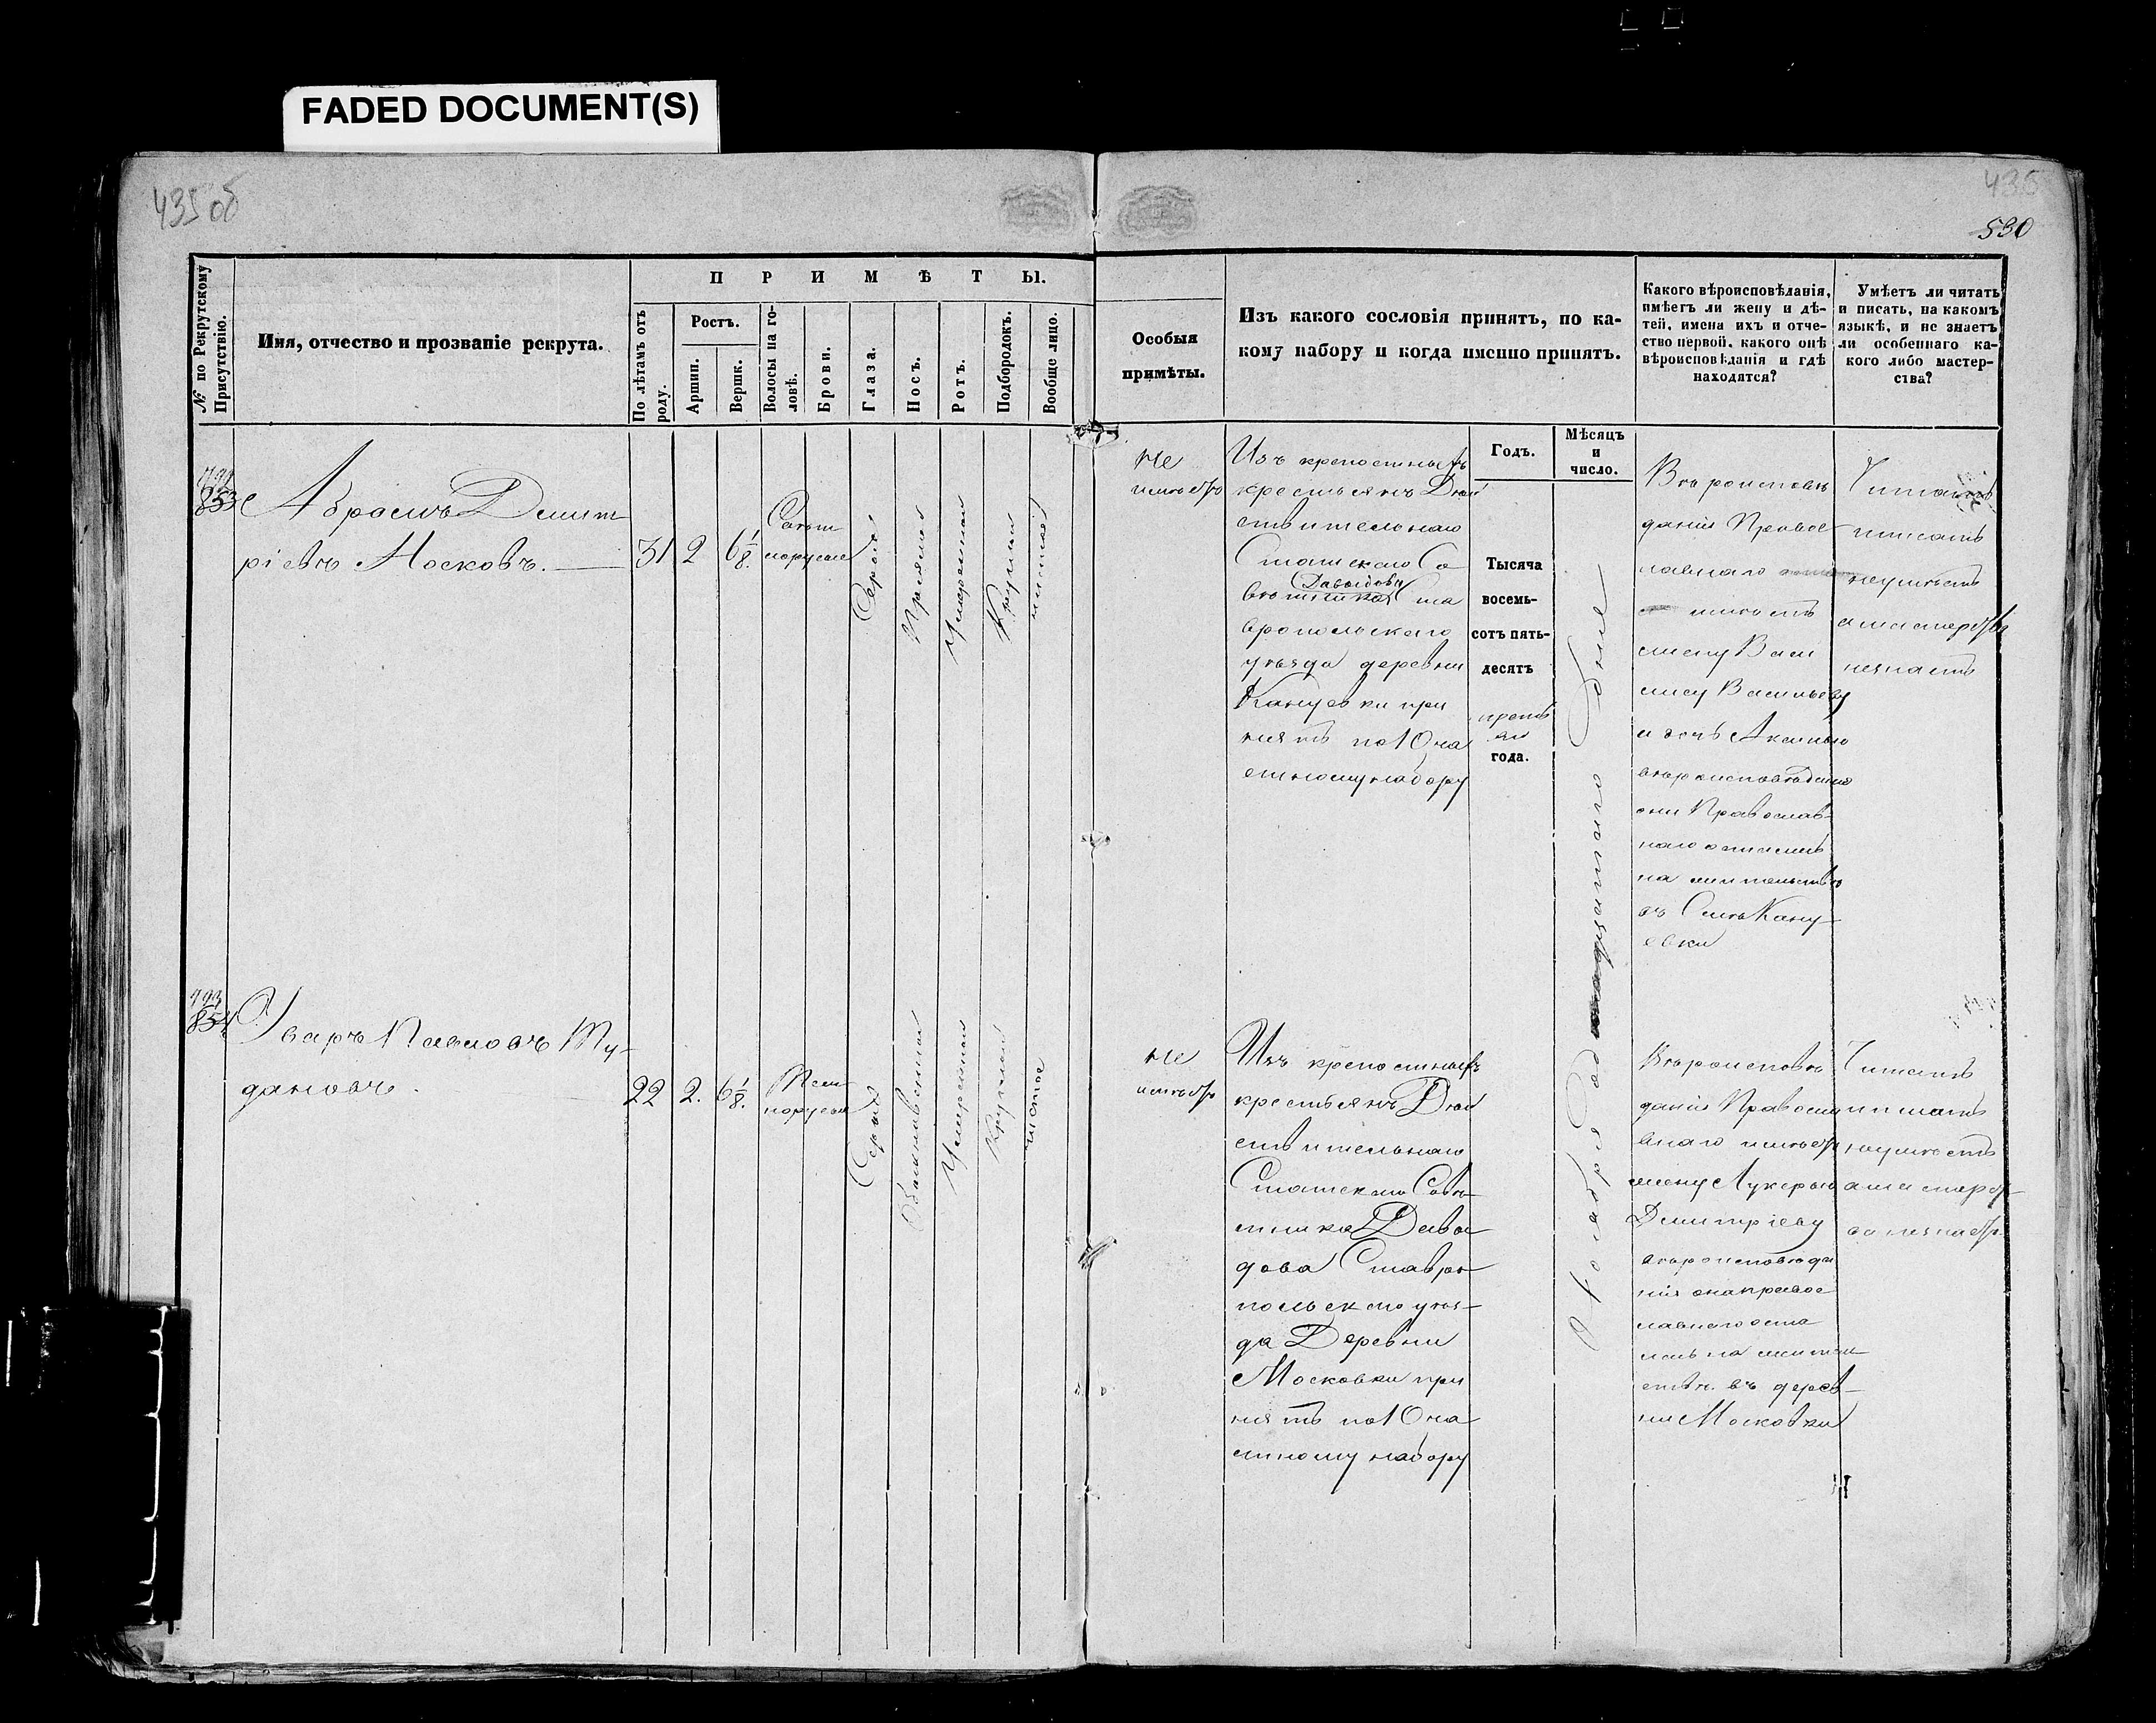 FADED DOCUMENT(S)
435 об
435
530
№ по Рекрутскому Присутствію.
Имя, отчество и прозваніе рекрута.
ПРИМѢТЫ.
По лѣтамъ отъ роду.
Ростъ.
Аршин.
Вершк.
Волосы на головѣ.
Брови.
Глаза.
Носъ.
Ротъ.
Подбородокъ.
Вообще лицо.
Особыя
примѣты.
Изъ какого сословія принятъ, по ка-
кому набору и когда именно принятъ.
Какого вѣроисповѣданія,
имѣетъ ли жену и дѣ-
тей, имена ихъ и отче-
ство первой, какого онѣ
вѣроисповѣданія и гдѣ
находятся?
Умѣетъ ли читать
и писать, на какомъ
языкѣ, и не знаетъ
ли особеннаго ка-
кого либо мастер-
ства?
Годъ.
Мѣсяцъ
и
число.
853
Абрамъ Дмит
ріевъ Московъ.
31
2
6 1/8.
Свѣт
лорусые
Серые
Прямой
Умеренный
Круглый
чистое
Не
имѣетъ
Изъ крепостныхъ
крестьянъ Дѣй
ствительнаго
Статскаго Со
вѣтника Давыдова Ста
вропольскаго
уѣзда деревни
Кануевки при
нятъ по 10 ча
стному набору
Тысяча
восемь-
сотъ пять-
десятъ
третья
го
года.
Октября
дня
Вѣроисповѣ
данія Правос
лавнаго
имѣетъ
жену Васи
лису Васильеву
и дочь Аксинью
вѣроисповѣданія
они Православ-
наго остались
на жительствѣ
въ Селѣ Кану-
евки
Читать
писать
неумѣетъ
а мастерства
незнаетъ
854
Уваръ Павловъ Ту-
дановъ.
22
2.
6 1/8.
Тем
норусые
Серые
Обыкновенный
Умеренный
Круглый
чистое
Не
имѣетъ
Изъ крепостныхъ
крестьянъ Дѣй
ствительнаго
Статскаго Совѣ-
тника Давы-
дова Ставро-
польскаго уѣз-
да Деревни
Московки при
нятъ по 10 ча
стному набору
Вѣроисповѣ
данія Правосла
внаго имѣетъ
жену Лукерью
Дмитріеву
вѣроисповѣда
нія она правос
лавнаго оста
лась на житель
ствѣ въ дерев-
ни Московки
Читать
писать
неумѣетъ
а мастерст-
ва незнаетъ